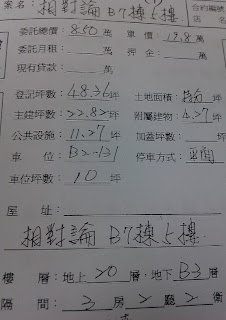 案名：相對論B7棟5樓 合約編號
店名
委託總價：850萬 單價：19.8萬
委託月租：萬 押金：萬
現有貸款：萬
登記坪數：48.36坪 土地面積：持分坪
主建坪數：22.82坪 附屬建物：4.27坪
公共設施：11.27坪 加蓋坪數：坪
車位：B2-131 停車方式：平面
車位坪數：10坪
屋址：
相對論B7棟5樓
樓層：地上20層，地下B3層
隔間：3房2廳2衛